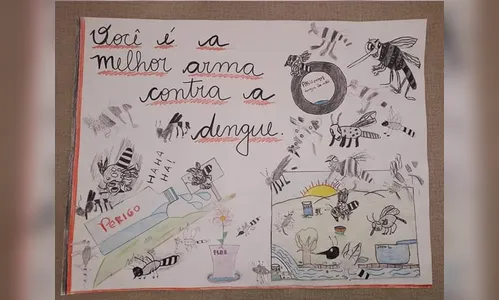 Você é a
melhor arma
contra a
dengue.
HAHA
HA!
PERIGO